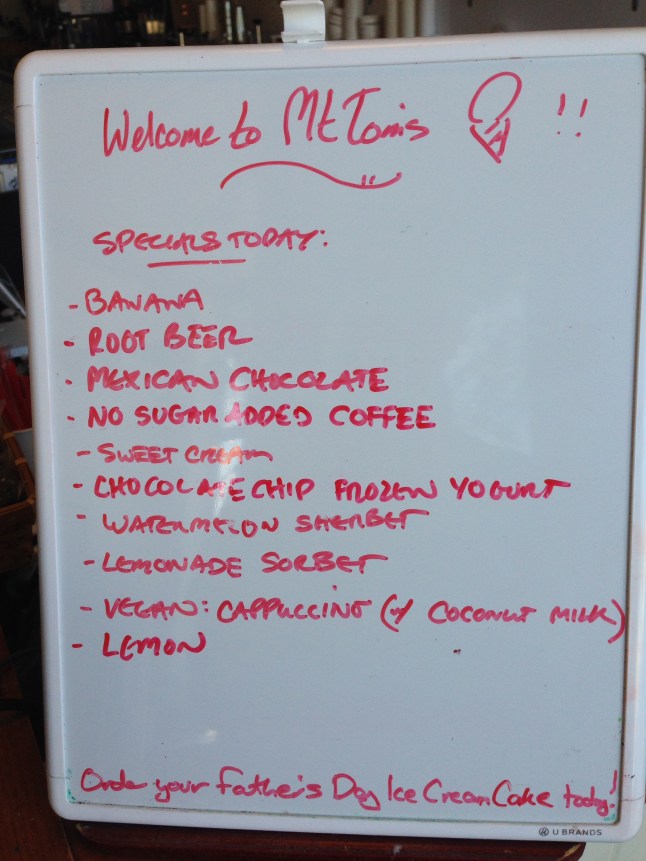 Welcome to Mt Tom's !!
SPECIALS TODAY:
- BANANA
- ROOT BEER
- MEXICAN CHOCOLATE
- NO SUGAR ADDED COFFEE
- SWEET CREAM
- CHOCOLATE CHIP FROZEN YOGURT
- WATERMELON SHERBET
- LEMONADE SORBET
- VEGAN: CAPPUCCINO (w/ COCONUT MILK)
- LEMON
Order your Father's Day Ice Cream Cake today!
U BRANDS